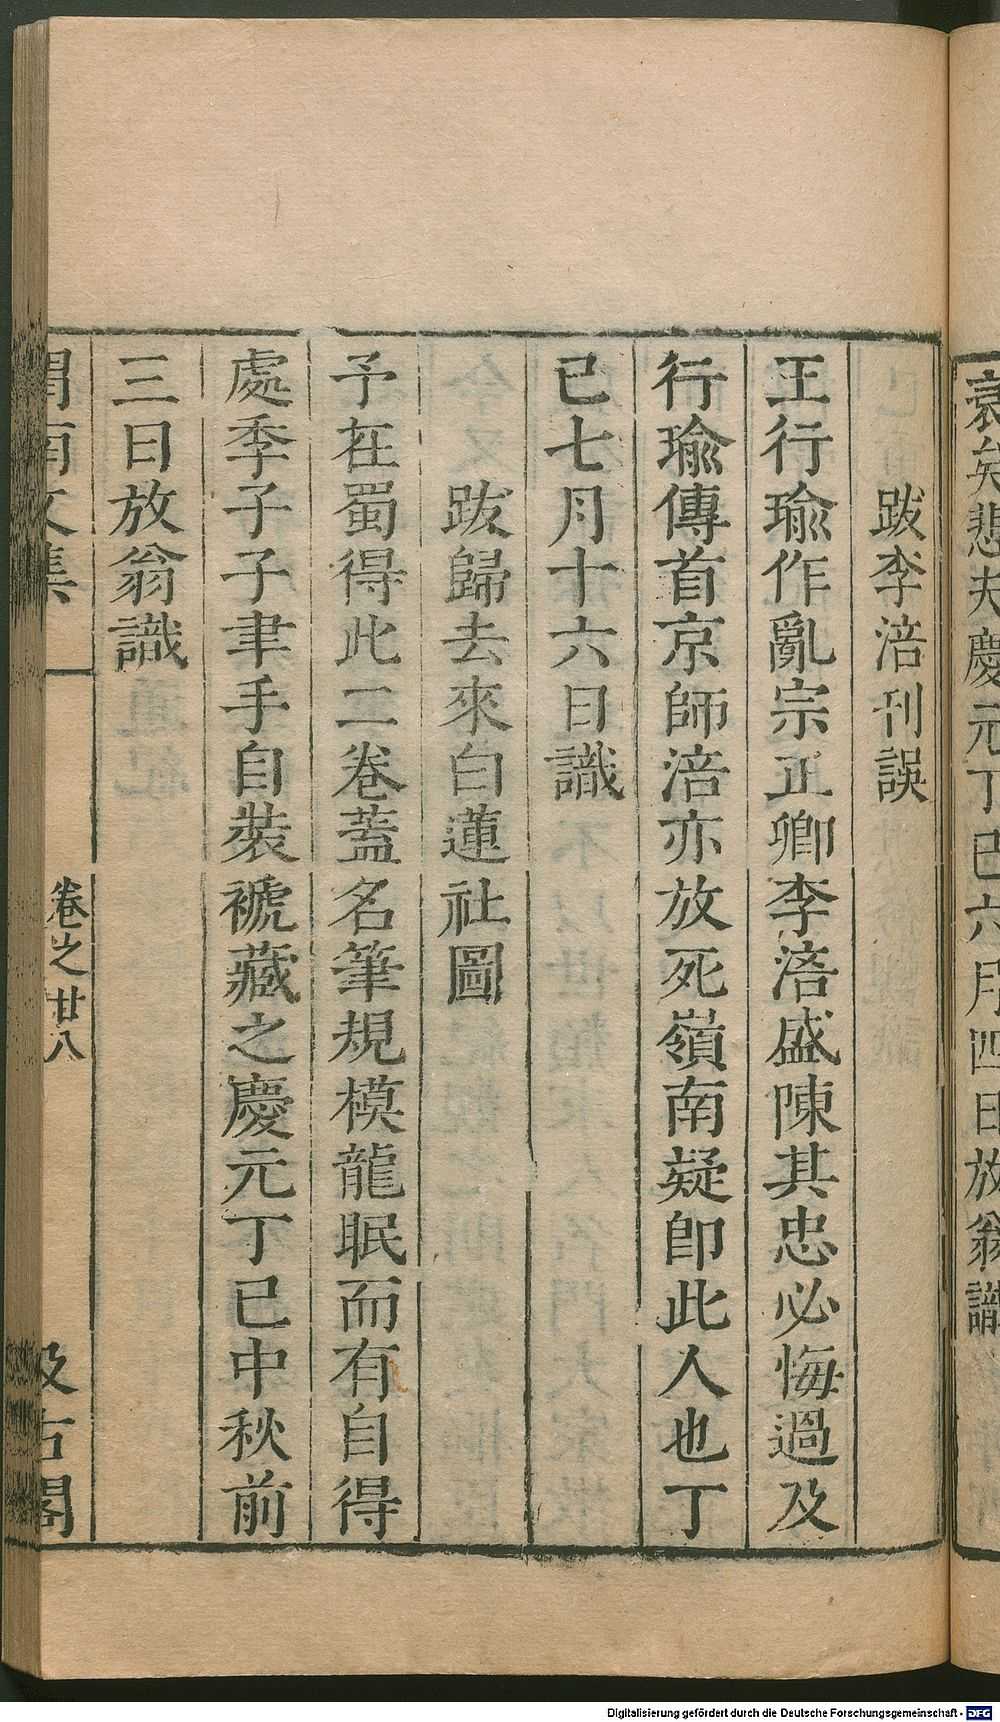 衰矣悲夫慶元丁巳六月四日放翁識
跋李涪刊誤
王行瑜作亂宗正卿李涪盛陳其忠必悔過及
行瑜傳首京師涪亦放死嶺南疑卽此人也丁
巳七月十六日識
跋歸去來白蓮社圖
予在蜀得此二卷蓋名筆規模龍眠而有自得
處季子子聿手自裝褫藏之慶元丁巳中秋前
三日放翁識
渭南文集
卷之廿八
汲古閣
Digitalisierung gefördert durch die Deutsche Forschungsgemeinschaft - DFG